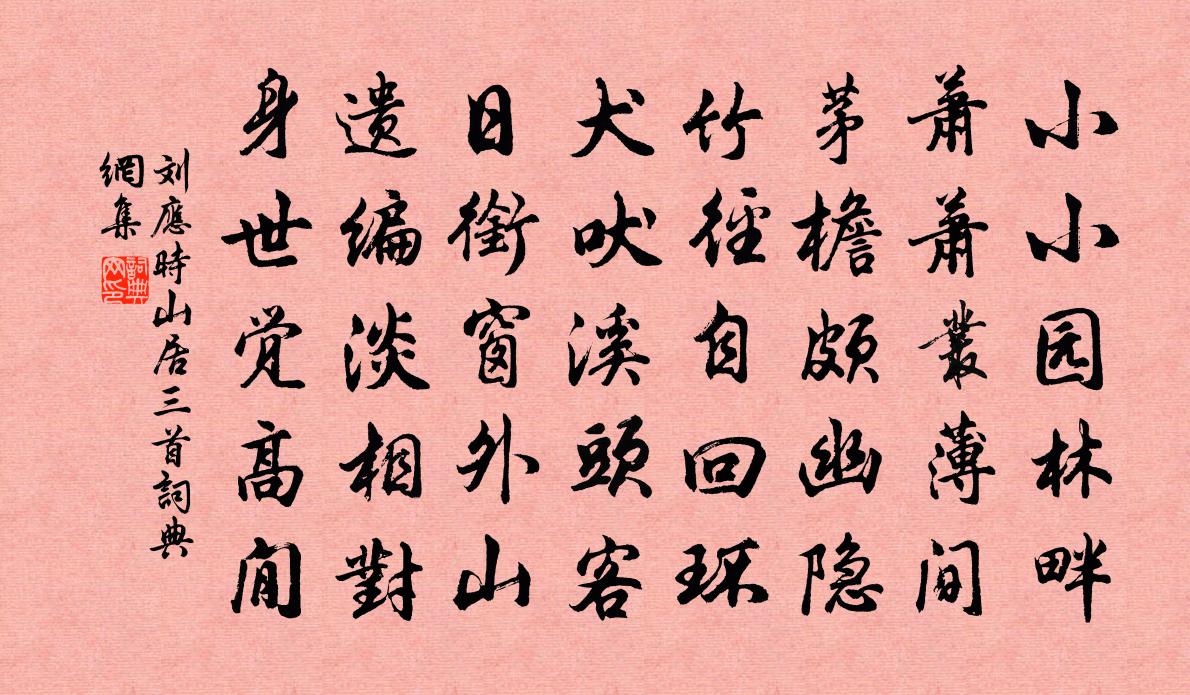 小小园林畔
萧萧叢薄间
茅檐頗幽隐
竹徑自回环
犬吠溪頭客
日銜窗外山
遗编淡相對
身世觉高闲
刘應時山居三首詞典
網集
詞典網印